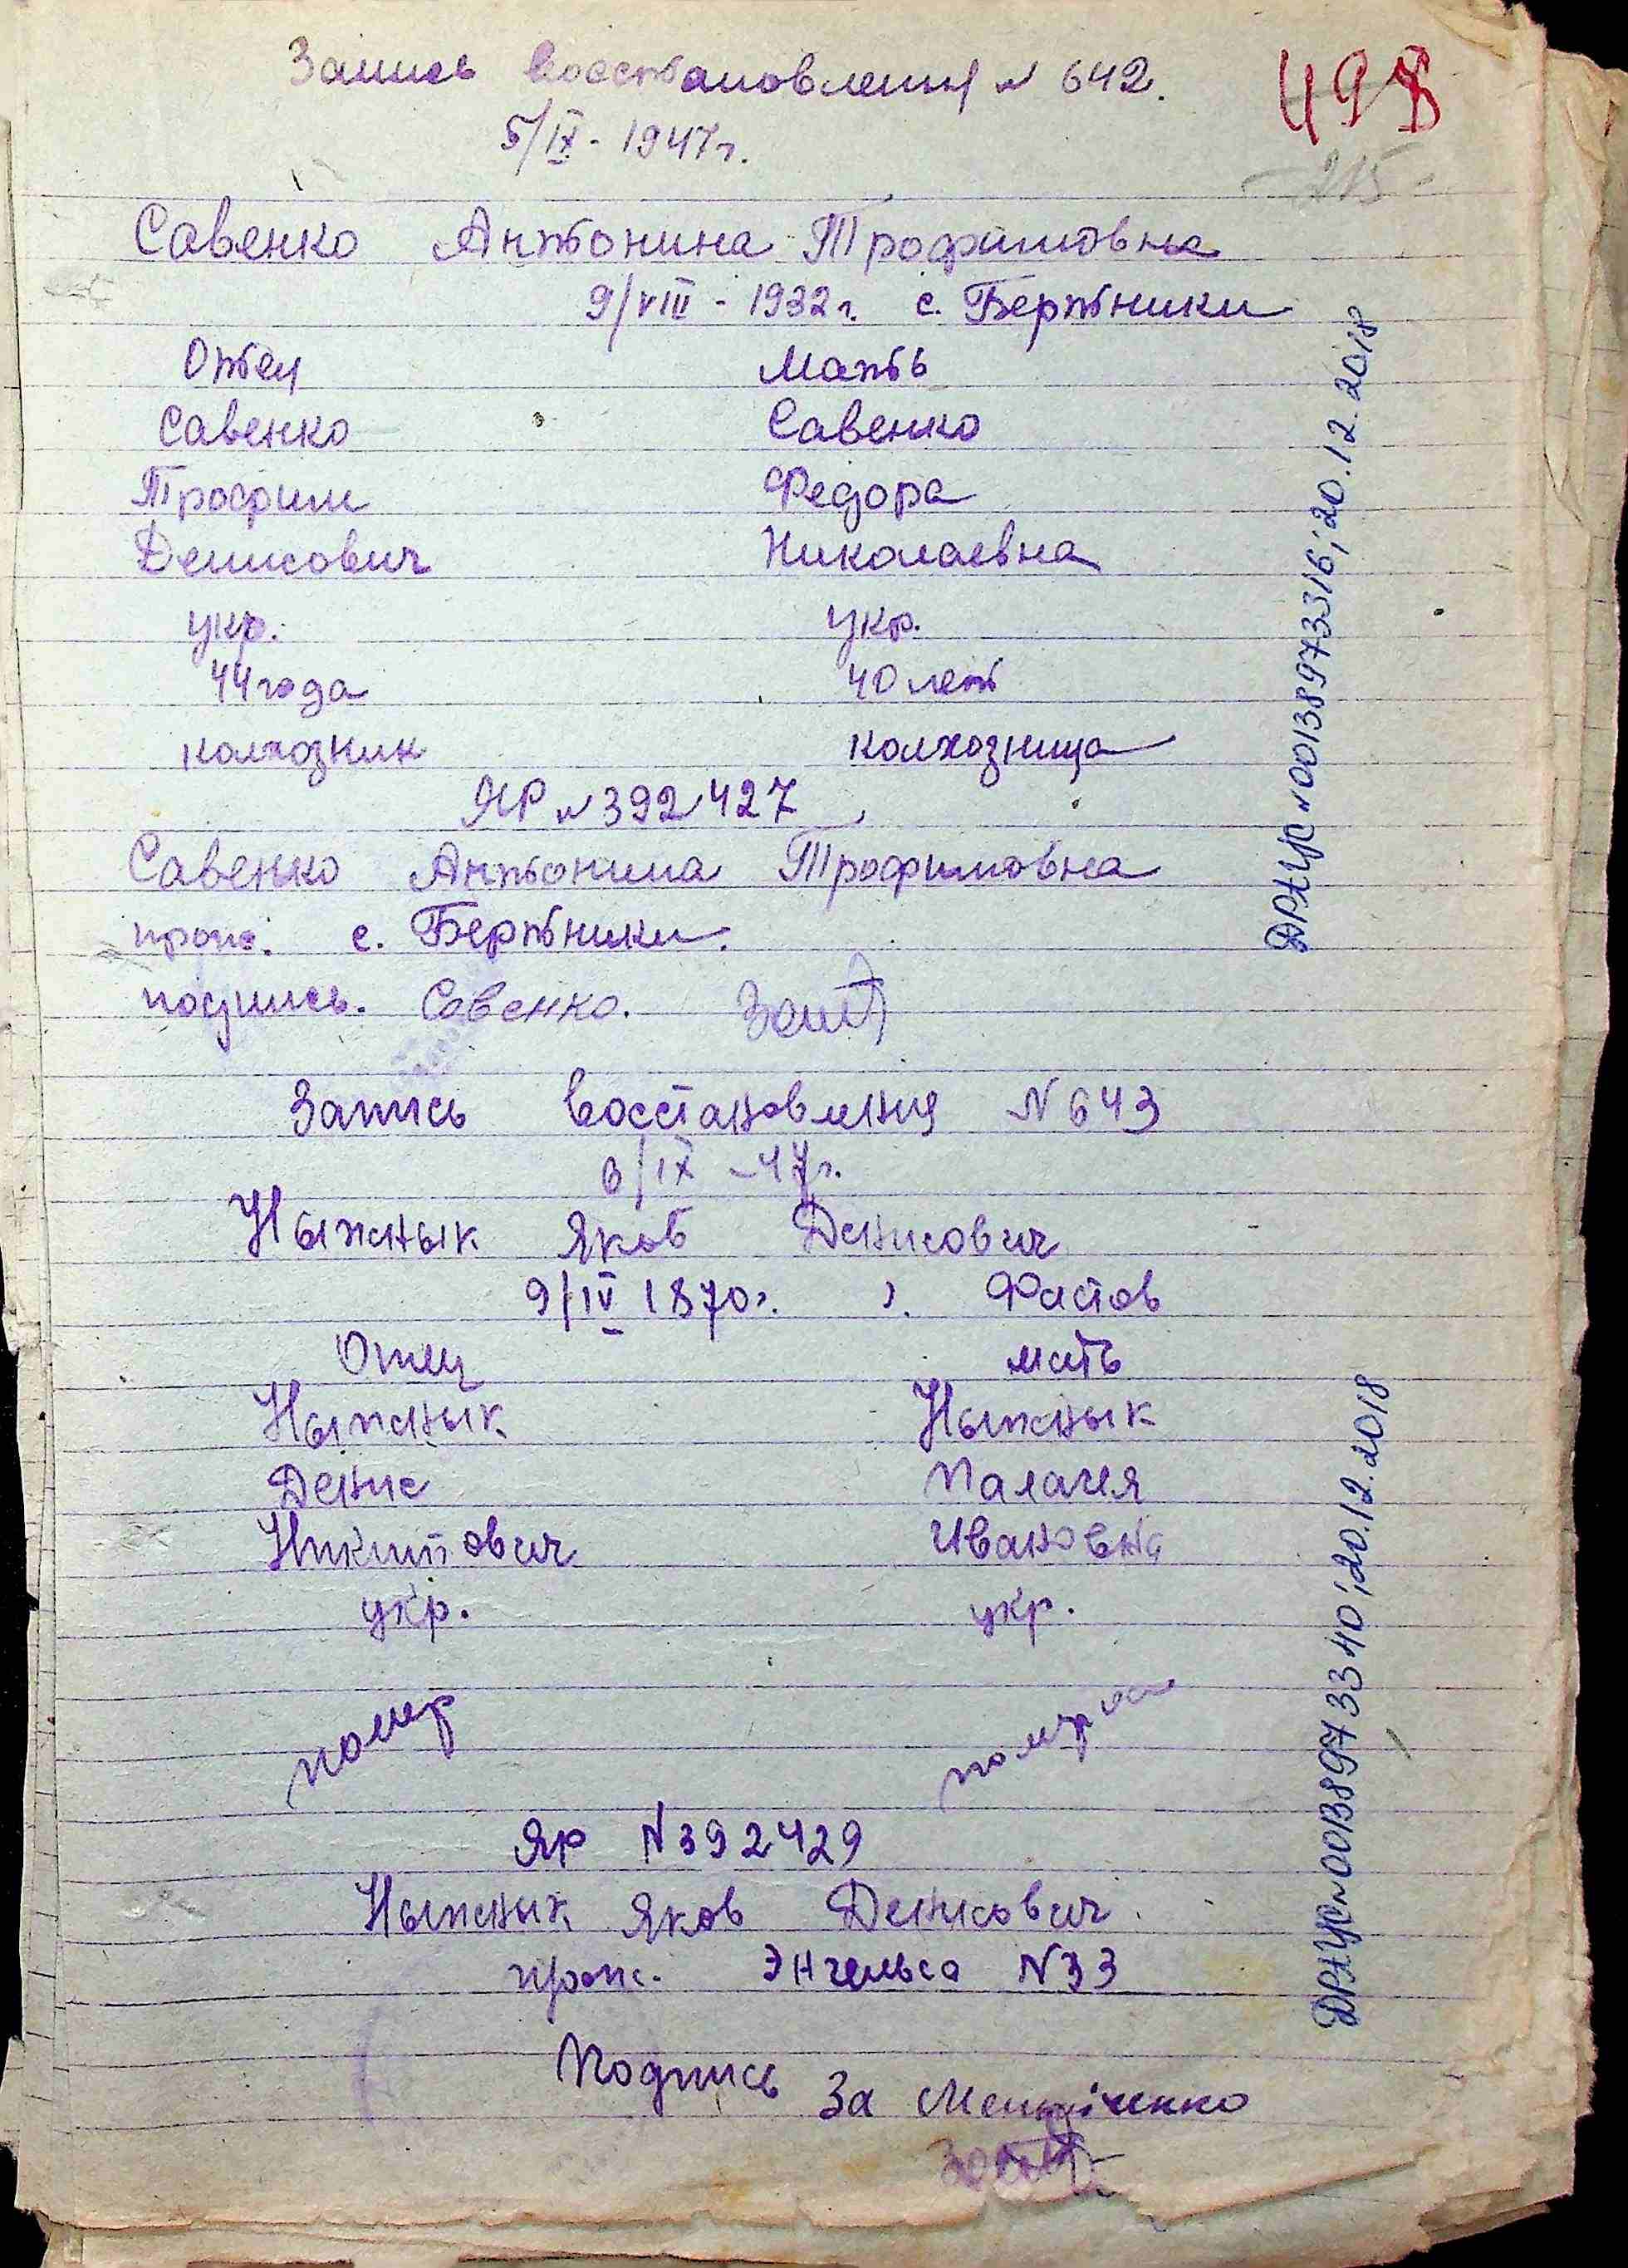 Запись восстановления № 642.
498
5/IX - 1947 г.
215
Савенко Антонина Трофимовна
9/VIII - 1932 г. с. Бертники
Отец Мать
Савенко Савенко
Трофим Федора
Денисович Николаевна
укр. укр.
44 года 40 лет
колхозник колхозница
ЯР № 392427
Савенко Антонина Трофимовна
прож. с. Бертники.
подпись. Савенко.
ДРАЦС № 00138973316; 20.12.2018
Запись восстановления N 643
6/IX - 47 г.
Ныжнык Яков Денисович
9/IV 1870 г. г. Фастов
Отец мать
Ныжнык Ныжнык
Денис Палагея
Никитович Ивановна
укр. укр.
помер померла
Яр N 392429
Ныжнык Яков Денисович.
прож. Энгельса N 33
Подпись За
ДРАЦС № 00138973340; 20.12.2018